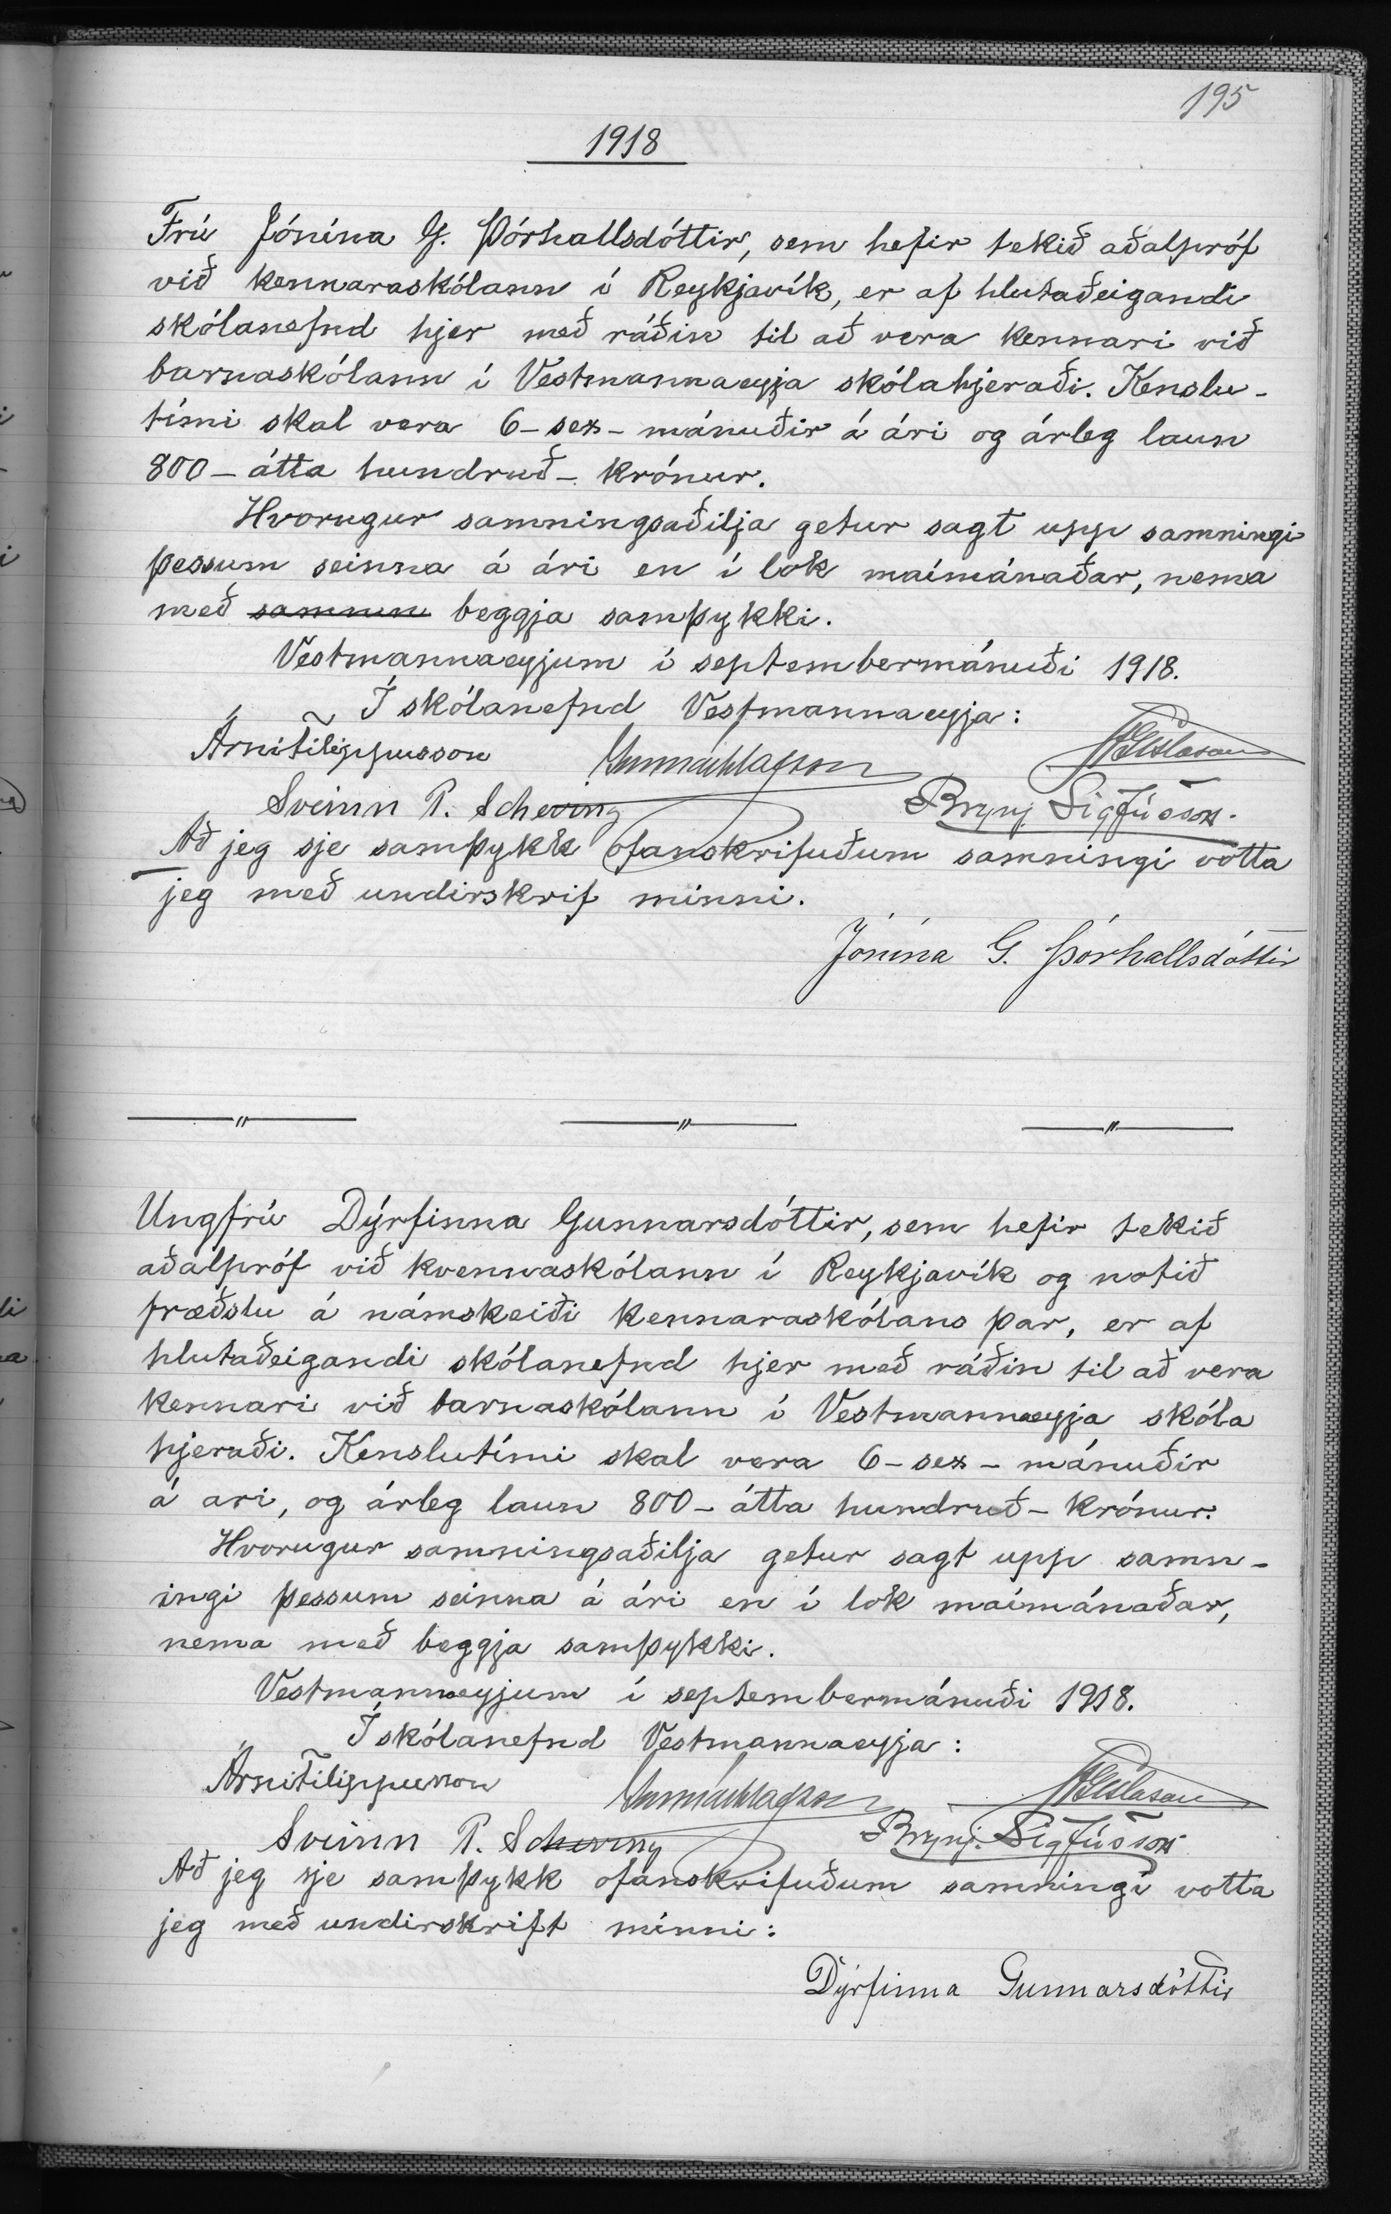 195
1918
Frú Jónína G. Þórhallsdóttir, sem hefir tekið aðalpróf
við kennaraskólann í Reykjavík, er af hlutaðeigandi
skólanefnd hjer með ráðin til að vera kennari við
barnaskólann í Vestmannaeyja skólahjeraði. Kenslu-
tími skal vera 6 - sex - mánuðir á ári og árleg laun
800 - átta hundruð - krónur.
Hvorugur samningsaðilja getur sagt upp samningi
þessum seinna á ári en í lok maímánaðar, nema
með samnin beggja samþykki.
Vestmannaeyjum í septembermánuði 1918.
Í skólanefnd Vestmannaeyja:
Árni Filippusson Gunnar Ólafsson Gíslason
Sveinn P. Scheving Brynj. Sigfússon.
Að jeg sje samþykk ofanskrifuðum samningi votta
jeg með undirskrif minni.
Jónína G. Þórhallsdóttir
Ungfrú Dýrfinna Gunnarsdóttir, sem hefir tekið
aðalpróf við kvennaskólann í Reykjavík og notið
fræðslu á námskeiði kennaraskólans þar, er af
hlutaðeigandi skólanefnd hjer með ráðin til að vera
kennari við barnaskólann í Vestmannaeyja skóla
hjeraði. Kenslutími skal vera 6 - sex - mánuðir
á ari, og árleg laun 800 - átta hundruð - krónur.
Hvorugur samningsaðilja getur sagt upp samn-
ingi þessum seinna á ári en í lok maímánaðar,
nema með beggja samþykki.
Vestmannaeyjum í septembermánuði 1918.
Í skólanefnd Vestmannaeyja:
Árni Filippusson Gunnar Ólafsson Gíslason
Sveinn P. Scheving Brynj. Sigfússon
Að jeg sje samþykk ofanskrifuðum samningi votta
jeg með undirskrift minni:
Dýrfinna Gunnarsdóttir